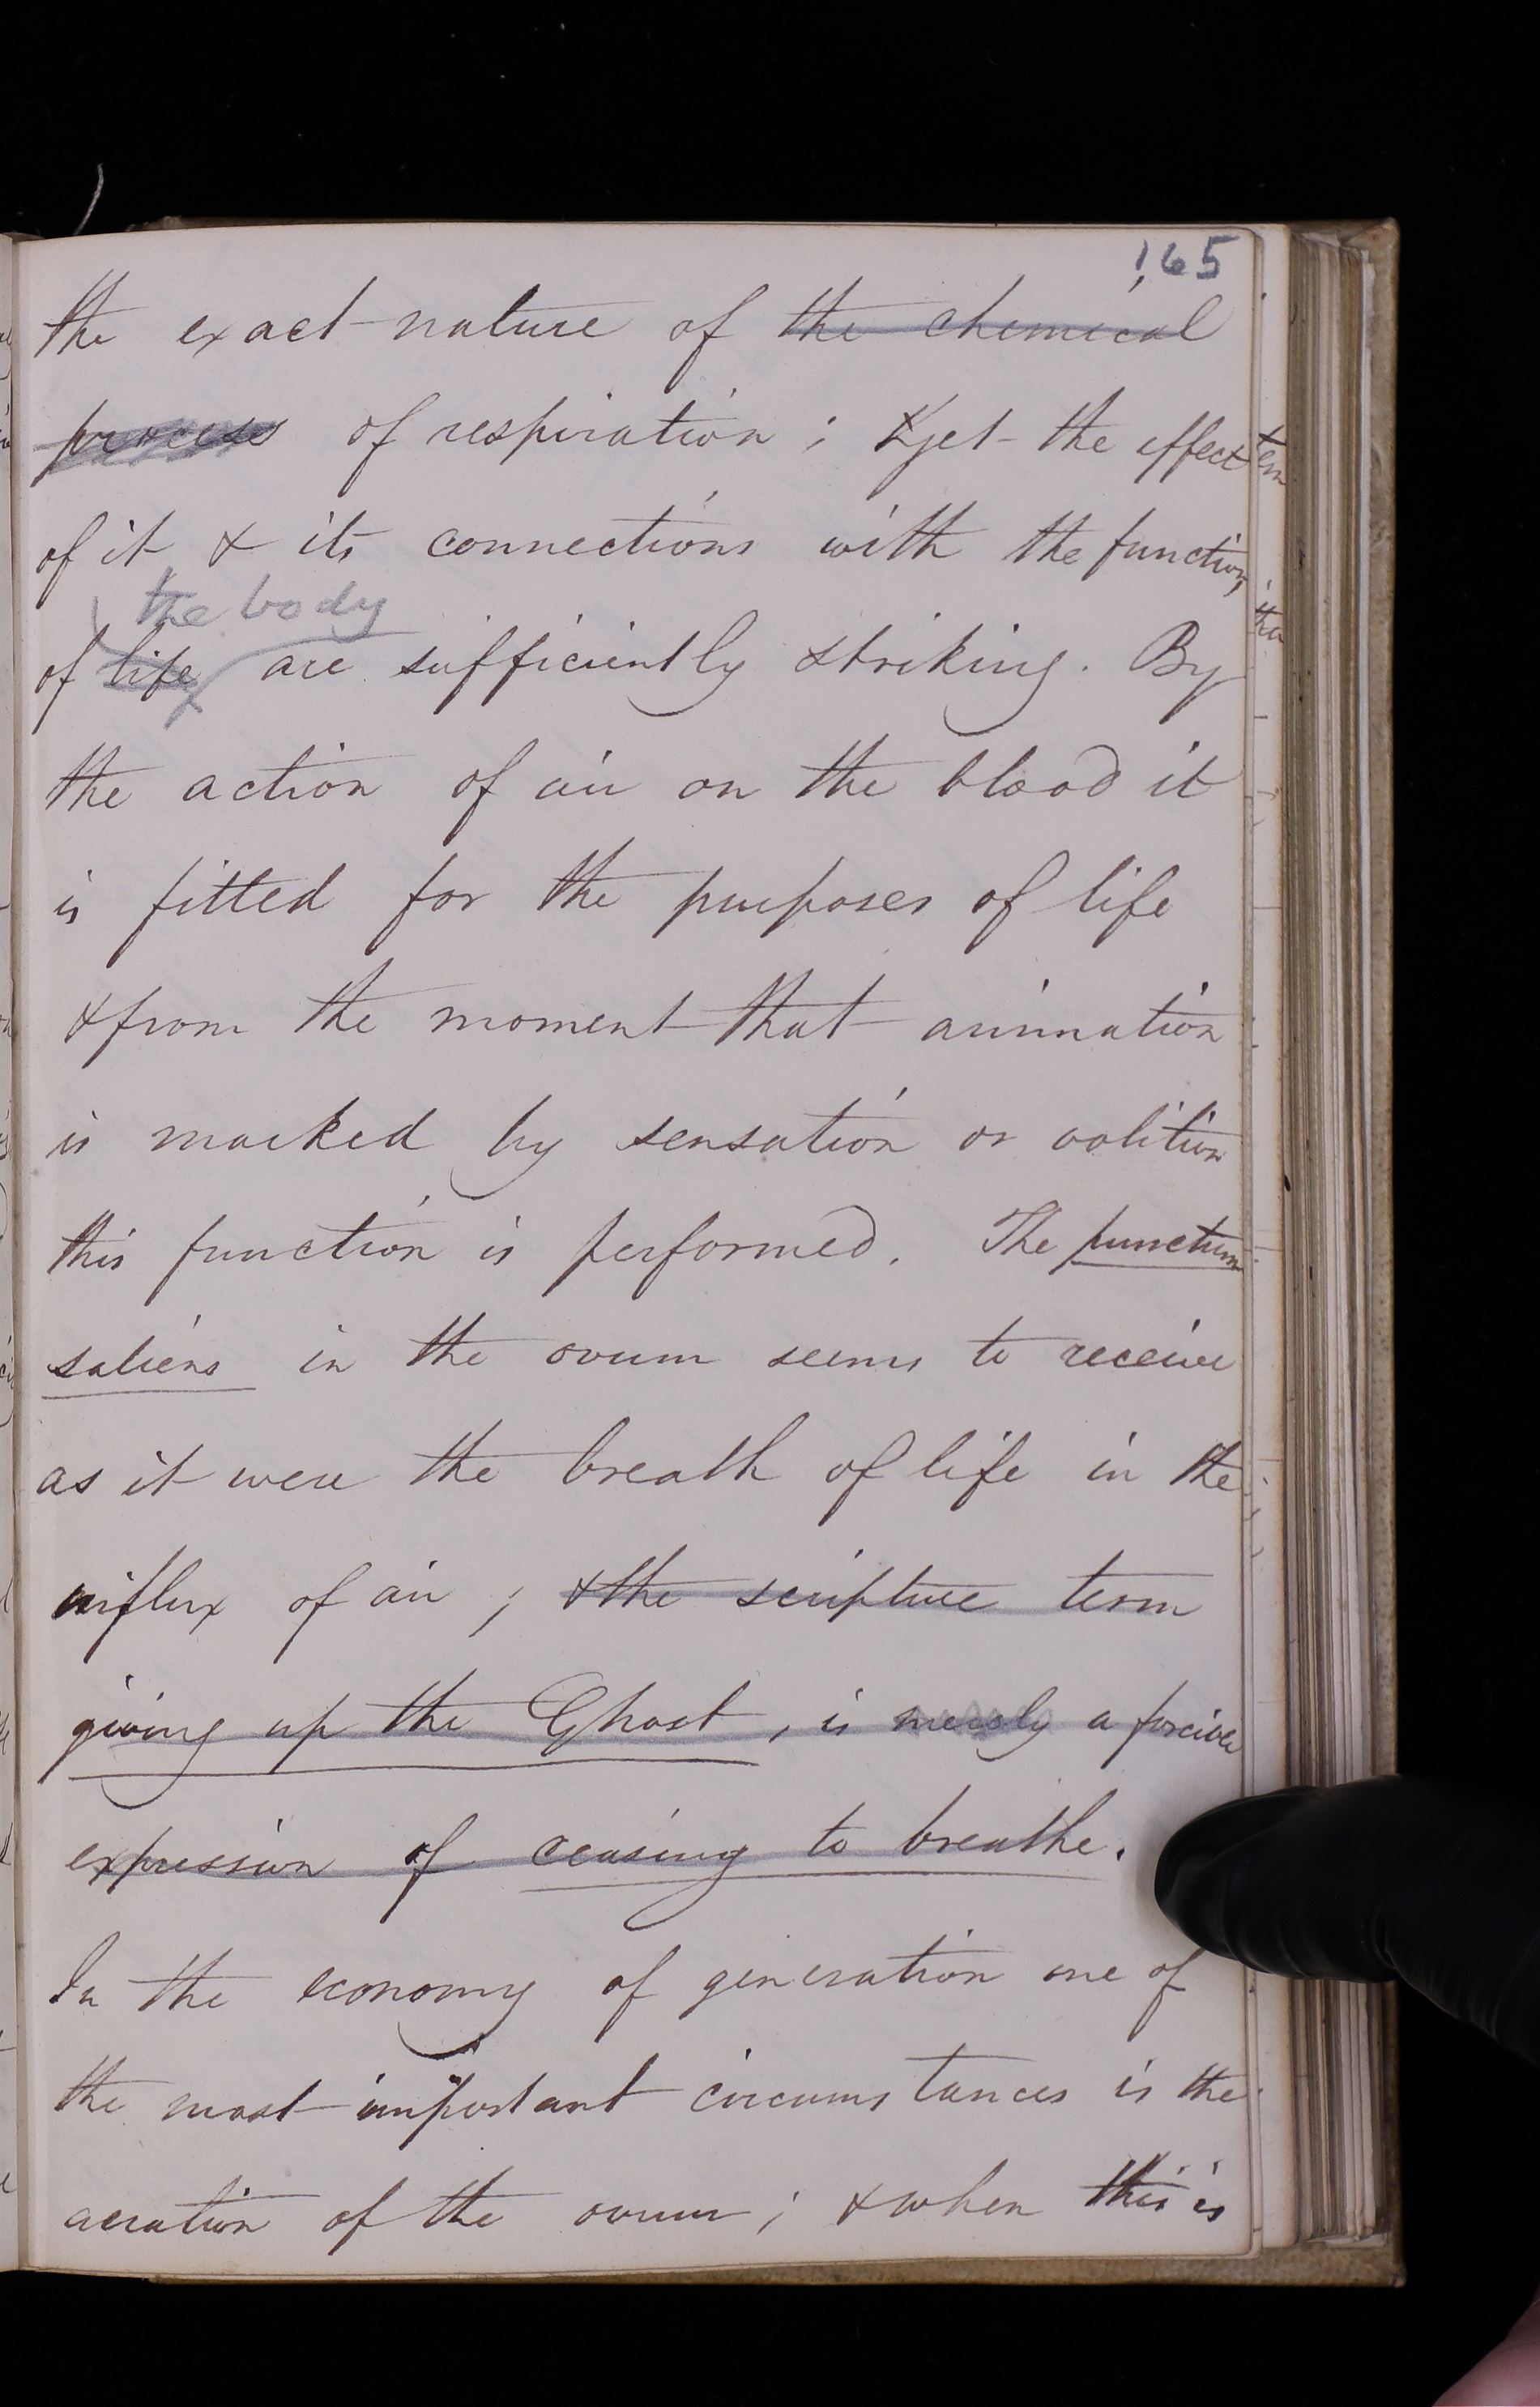 165
the exact nature of the chemical
process of respiration; & yet the effect
of it & its connections with the functions
the body
of life are sufficiently striking. By
the action of air on the blood it
is fitted for the purposes of life
& from the moment that animation
is marked by sensation or volition
this function is performed. The punctum
saliens in the ovum seems to receive
as it were the breath of life in the
influx of air; & the scripture term
giving up the Ghost, is merely a forcible
expression of ceasing to breathe.
In the economy of generation one of
the most important circumstances is the
aeration of the ovum; & when this is